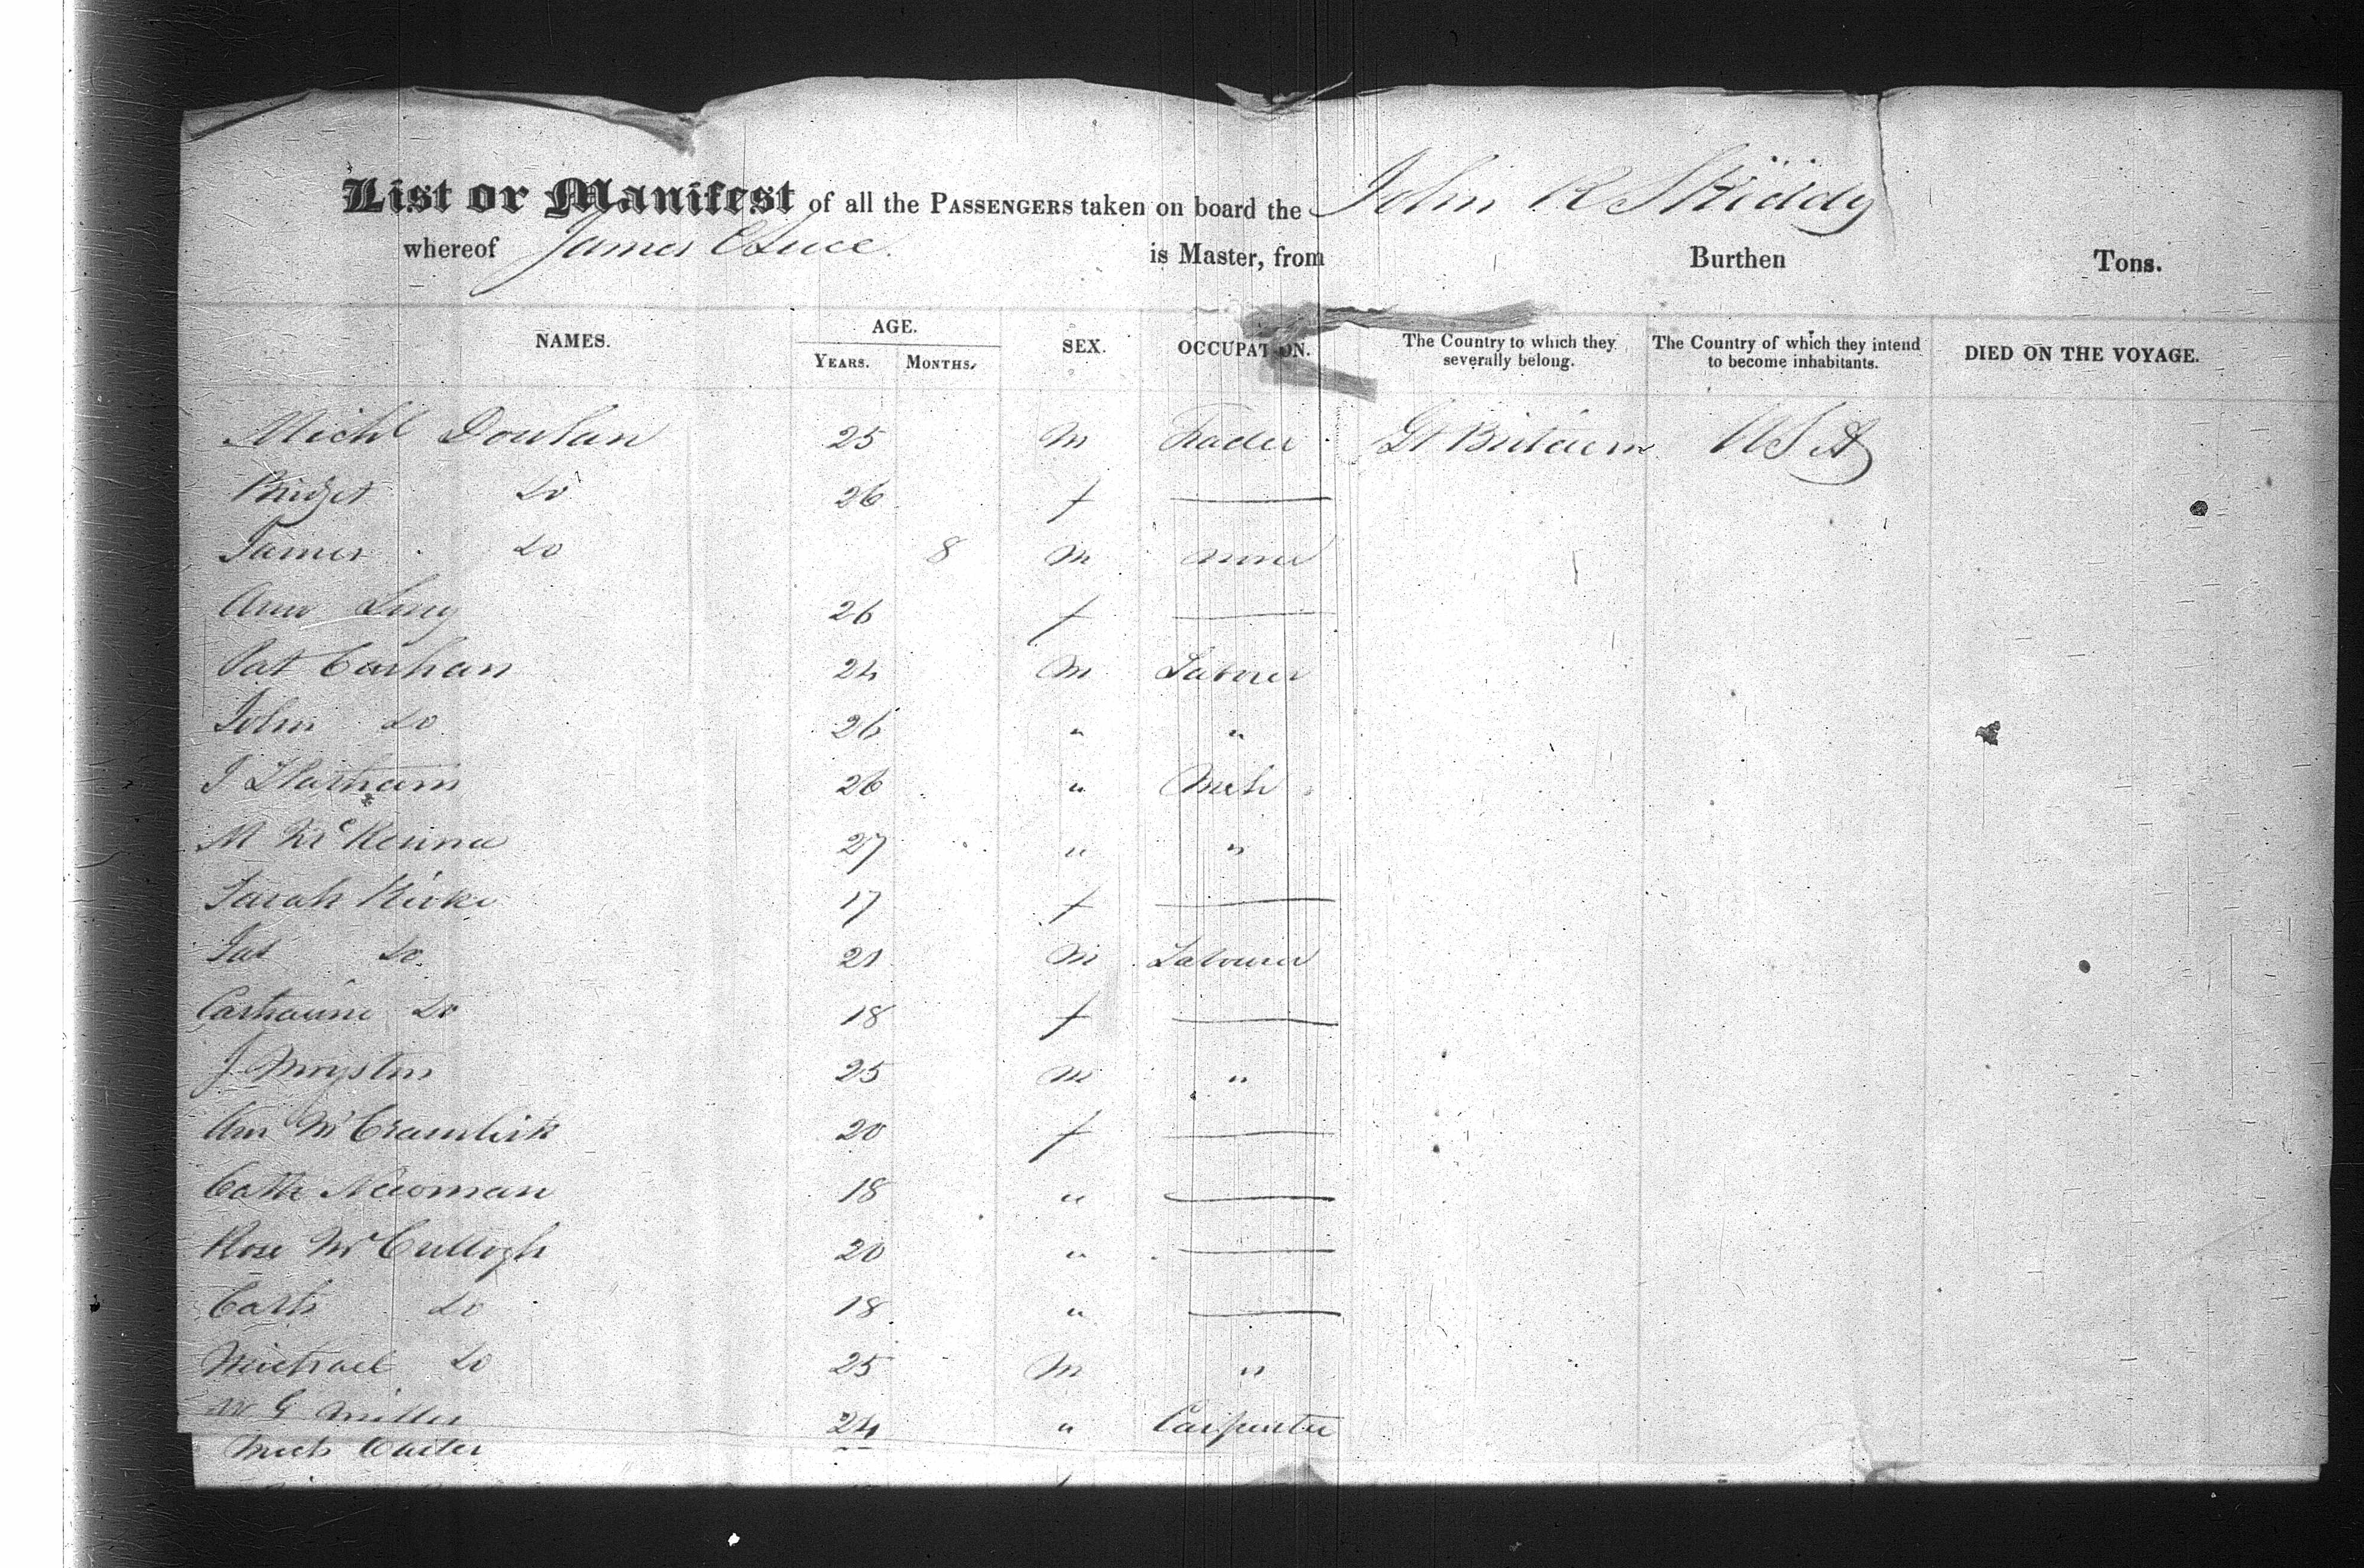 List or Manifest of all the PASSENGERS taken on board the John R Skiddy
whereof James C Luce is Master, from Burthen Tons.
NAMES. AGE. SEX. OCCUPATION. The Country to which they severally belong. The Country of which they intend to become inhabitants. DIED ON THE VOYAGE.
YEARS. MONTHS.
Michl 25 m Trader Gt Britain USA
Bridget Do 26 f
James Do 8 m none
Ann 26 f
Pat 24 m Laborer
John Do 26 " "
J 26 " Mech
M McKenna 27 " "
Sarah 17 f
Do 21 m Labourer
Do 18 f
J 25 m "
Ann 20 f
Cath Newman 18 "
Rose McCullogh 20 "
Cath Do 18 "
Michael Do 25 m "
G Miller 24 " Carpenter
Mich Carter